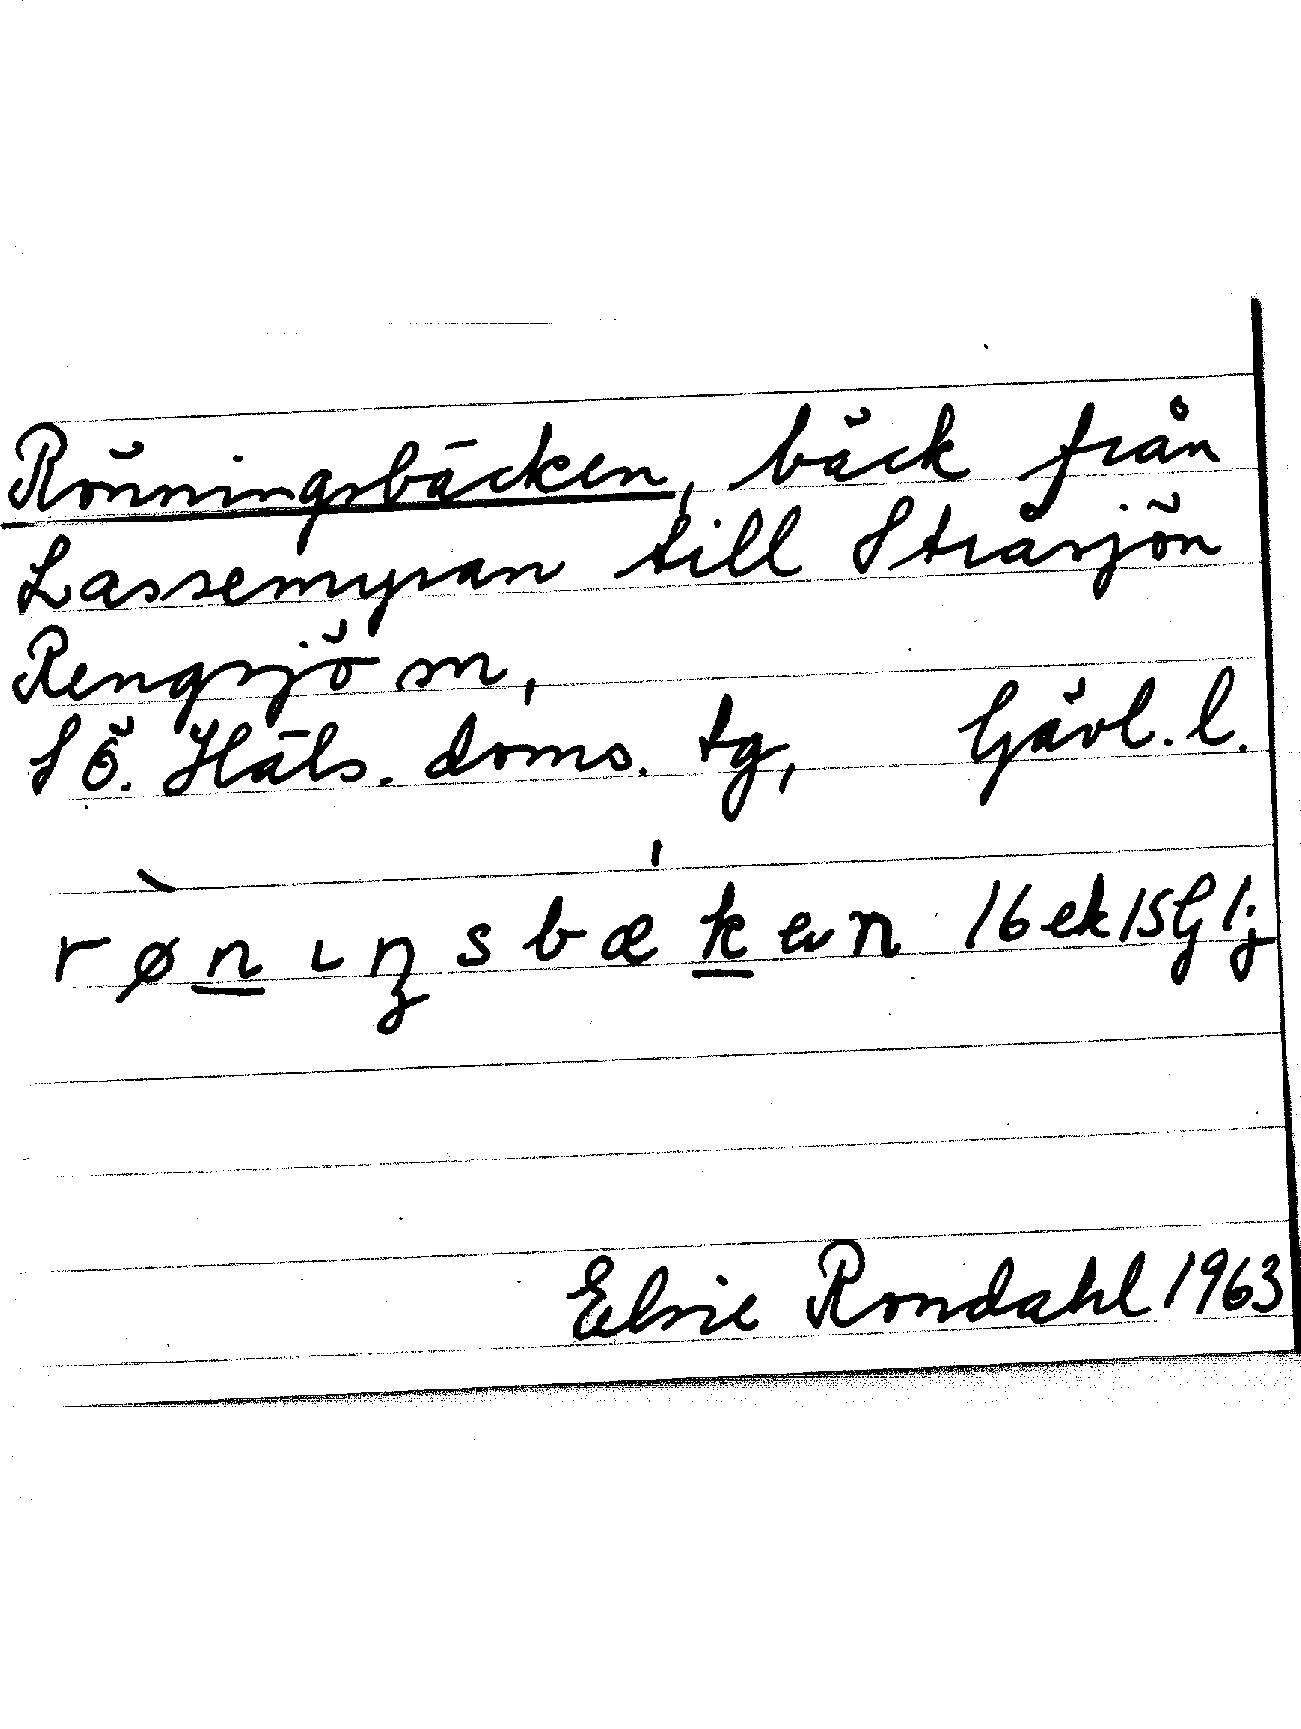 Rönningsbäcken, bäck från
Lassemyran till Stråsjön
Rengsjö sn,
SÖ. Häls. doms. tg, Gävl. l.
rø̀nıŋsbækən 16ek15G1j
Elsie Rondahl 1963